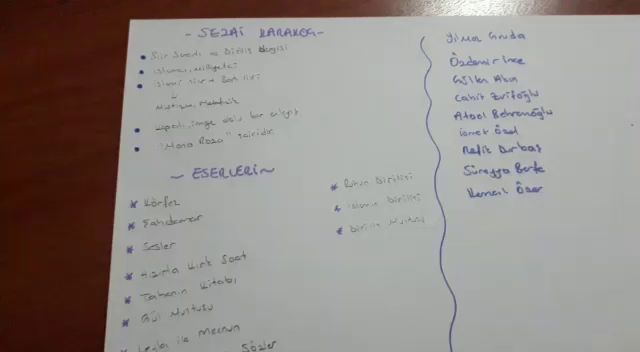 - SEZAİ KARAKOÇ -
Şiir Sanatı ve Diriliş dergisi
islamcı, milliyetçi
islami şiir +
Mistisizm, Metafizik
kapalı, imge dolu bir
"Mona Roza" şairidir.
~ ESERLERİ ~
* Körfez
* Şahdamar
* Sesler
* Hızırla Kırk Saat
* Tahanın Kitabı
* Gül Mustusu
* Leyla ile Mecnun
Sözler
* Ruhun Dirilişi
* islamın Dirilişi
* Diriliş Mustusu
Yılma Gruda
Özdemir İnce
Gülten Akın
Cahit Zrifoğlu
Ataol Behramoğlu
ismet Özel
Refik Durbaş
Süreyya Berfe
Kemal Özer